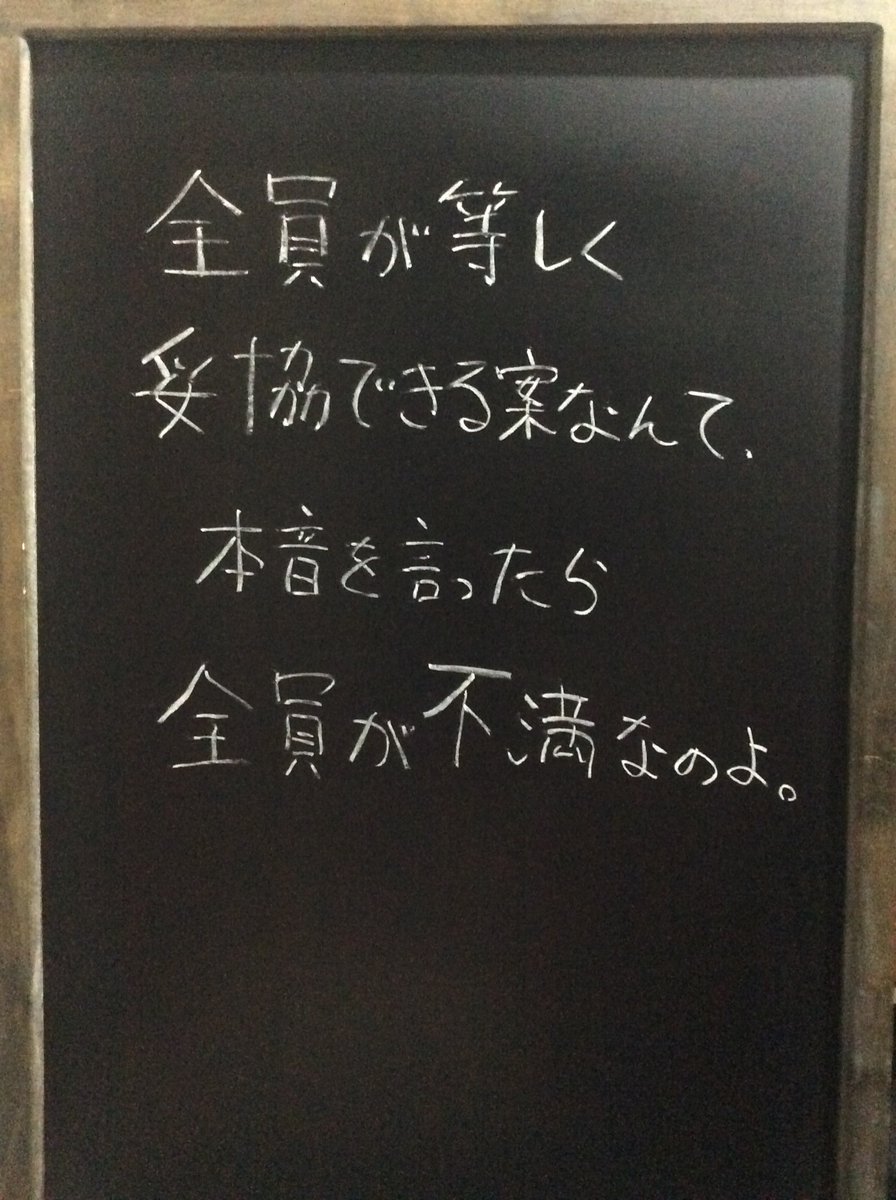 全員が等しく
妥協できる案なんて、
本音を言ったら
全員が不満なのよ。